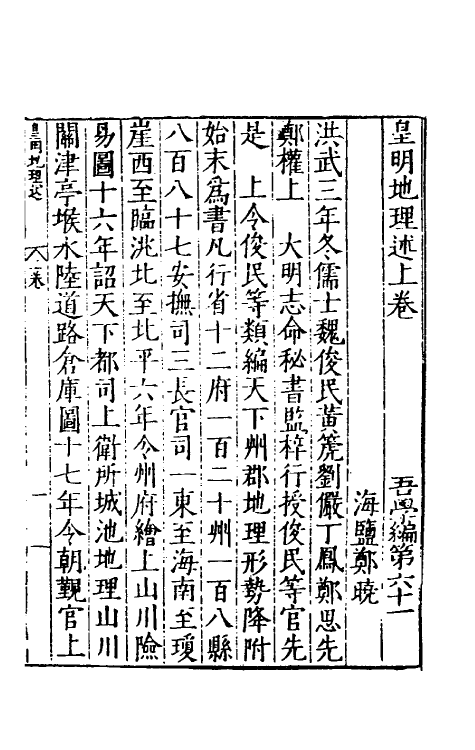 皇明地理述上卷　吾學編第六十一
海鹽鄭曉
洪武三年冬儒士魏俊民黃箎劉儼丁鳳鄭思先
鄭權上　大明志命秘書監梓行授俊民等官先
是　上令俊民等類編天下州郡地理形勢降附
始末爲書凡行省十二府一百二十州一百八縣
八百八十七安撫司三長官司一東至海南至瓊
崖西至臨洮北至北平六年令州府繪上山川險
易圖十六年詔天下都司上衛所城池地理山川
關津亭堠水陸道路倉庫圖十七年令朝覲官上
皇明地理述　上卷　一